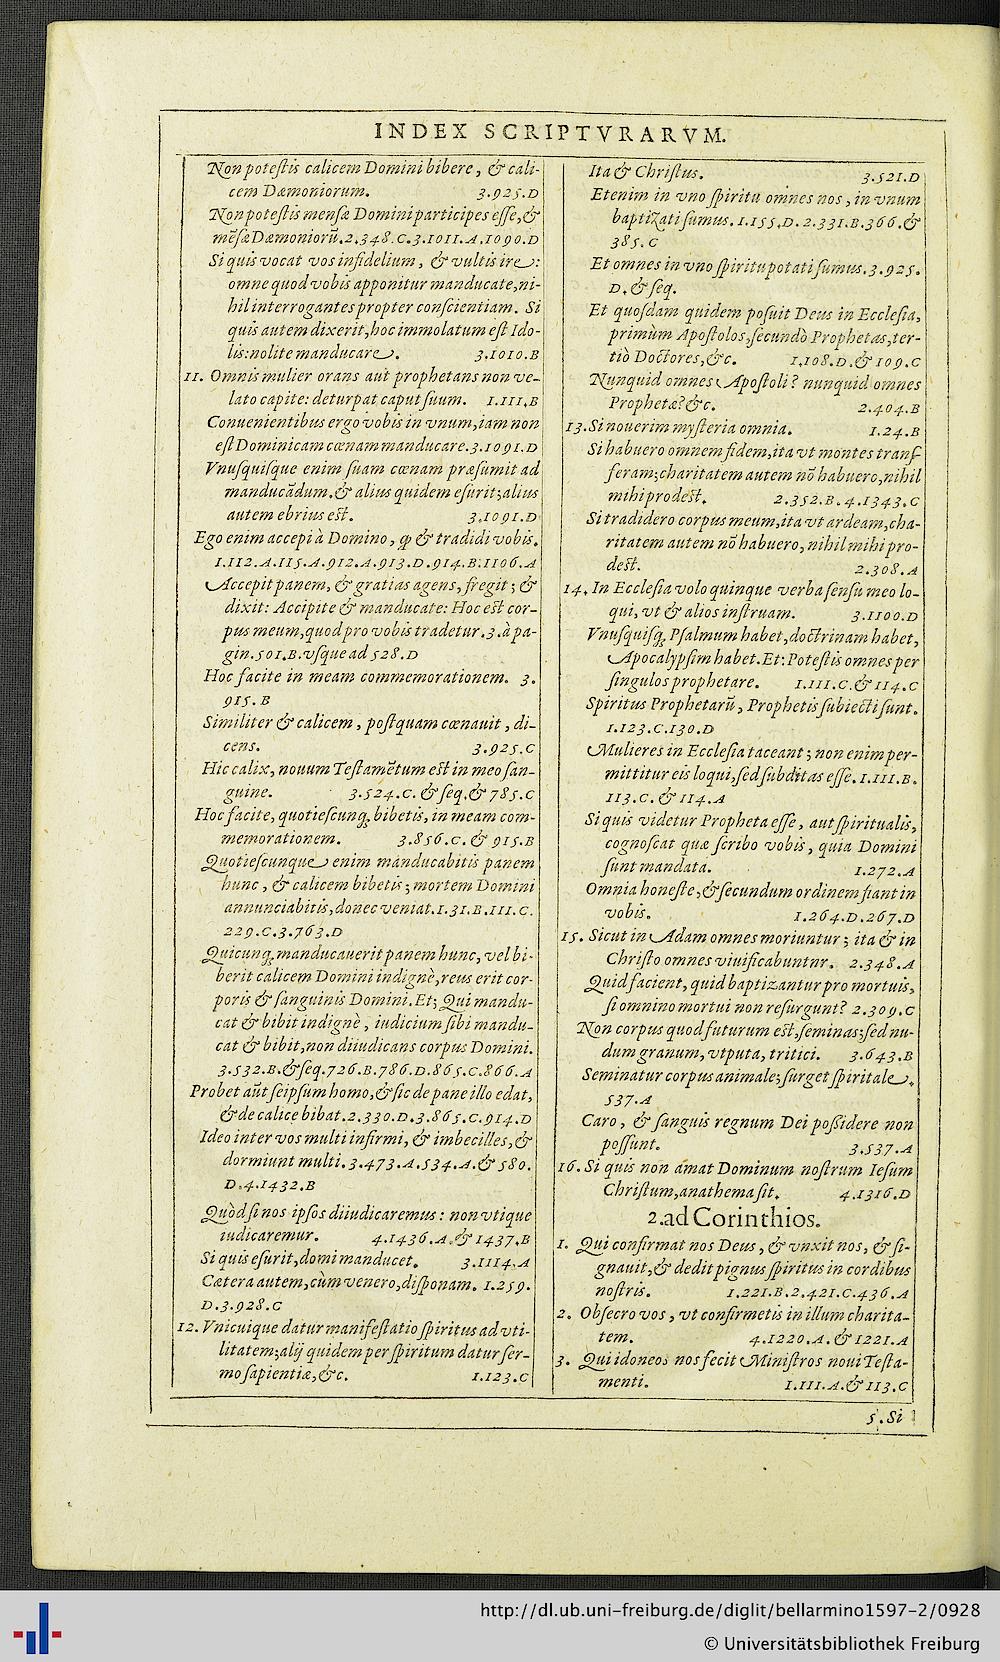 INDEX SCRIPTVRARVM.
Non potestis calicem Domini bibere, & cali-
cem Dæmoniorum. 3.925.D
Non potestis mensæ Domini participes esse, &
mēsæ Dæmoniorū. 2.348.C.3.1011.A.1090.D
Si quis vocat vos infidelium, & vultis ire:
omne quod vobis apponitur manducate, ni-
hil interrogantes propter conscientiam. Si
quis autem dixerit, hoc immolatum est Ido-
lis: nolite manducare. 3.1010.B
11. Omnis mulier orans aut prophetans non ve-
lato capite: deturpat caput suum. 1.111.B
Conuenientibus ergo vobis in vnum, iam non
est Dominicam cœnam manducare. 3.1091.D
Vnusquisque enim suam cœnam præsumit ad
manducādum. & alius quidem esurit; alius
autem ebrius est. 3.1091.D
Ego enim accepi à Domino, ꝙ & tradidi vobis.
1.112.A.115.A.912.A.913.D.914.B.1106.A
Accepit panem, & gratias agens, fregit; &
dixit: Accipite & manducate: Hoc est cor-
pus meum, quod pro vobis tradetur. 3. à pa-
gin. 501.B. vsque ad 528.D
Hoc facite in meam commemorationem. 3.
915.B
Similiter & calicem, postquam cœnauit, di-
cens. 3.925.C
Hic calix, nouum Testamētum est in meo san-
guine. 3.524.C. & seq. & 785.C
Hoc facite, quotiescunq; bibetis, in meam com-
memorationem. 3.856.C. & 915.B
Quotiescunque enim manducabitis panem
hunc, & calicem bibetis; mortem Domini
annunciabitis, donec veniat. 1.31.B.111.C.
229.C.3.763.D
Quicunq; manducauerit panem hunc, vel bi-
berit calicem Domini indignè, reus erit cor-
poris & sanguinis Domini. Et; Qui mandu-
cat & bibit indignè, iudicium sibi mandu-
cat & bibit, non diiudicans corpus Domini.
3.532.B. & seq. 726.B.786.D.865.C.866.A
Probet aūt seipsum homo, & sic de pane illo edat,
& de calice bibat. 2.330.D.3.865.C.914.D
Ideo inter vos multi infirmi, & imbecilles, &
dormiunt multi. 3.473.A.534.A. & 580.
D.4.1432.B
Quòd si nos ipsos diiudicaremus: non vtique
iudicaremur. 4.1436.A. & 1437.B
Si quis esurit, domi manducet. 3.1114.A
Cætera autem, cùm venero, disponam. 1.259.
D.3.928.C
12. Vnicuique datur manifestatio spiritus ad vti-
litatem; alij quidem per spiritum datur ser-
mo sapientiæ, &c. 1.123.C
Ita & Christus. 3.521.D
Etenim in vno spiritu omnes nos, in vnum
baptizati sumus. 1.155.D.2.331.B.366. &
385.C
Et omnes in vno spiritu potati sumus. 3.925.
D. & seq.
Et quosdam quidem posuit Deus in Ecclesia,
primùm Apostolos, secundò Prophetas, ter-
tiò Doctores, &c. 1.108.D. & 109.C
Nunquid omnes Apostoli? nunquid omnes
Prophetæ? &c. 2.404.B
13. Si nouerim mysteria omnia. 1.24.B
Si habuero omnem fidem, ita vt montes trans-
feram; charitatem autem nō habuero, nihil
mihi prodest. 2.352.B.4.1343.C
Si tradidero corpus meum, ita vt ardeam, cha-
ritatem autem nō habuero, nihil mihi pro-
dest. 2.308.A
14. In Ecclesia volo quinque verba sensu meo lo-
qui, vt & alios instruam. 3.1100.D
Vnusquisq; Psalmum habet, doctrinam habet,
Apocalypsim habet. Et: Potestis omnes per
singulos prophetare. 1.111.C. & 114.C
Spiritus Prophetarū, Prophetis subiecti sunt.
1.123.C.130.D
Mulieres in Ecclesia taceant; non enim per-
mittitur eis loqui, sed subditas esse. 1.111.B.
113.C. & 114.A
Si quis videtur Propheta esse, aut spiritualis,
cognoscat quæ scribo vobis, quia Domini
sunt mandata. 1.272.A
Omnia honeste, & secundum ordinem fiant in
vobis. 1.264.D.267.D
15. Sicut in Adam omnes moriuntur; ita & in
Christo omnes viuificabuntnr. 2.348.A
Quid facient, quid baptizantur pro mortuis,
si omnino mortui non resurgunt? 2.309.C
Non corpus quod futurum est, seminas; sed nu-
dum granum, vtputa, tritici. 3.643.B
Seminatur corpus animale; surget spiritale.
537.A
Caro, & sanguis regnum Dei possidere non
possunt. 3.537.A
16. Si quis non amat Dominum nostrum Iesum
Christum, anathema sit. 4.1316.D
2.ad Corinthios.
1. Qui confirmat nos Deus, & vnxit nos, & si-
gnauit, & dedit pignus spiritus in cordibus
nostris. 1.221.B.2.421.C.436.A
2. Obsecro vos, vt confirmetis in illum charita-
tem. 4.1220.A. & 1221.A
3. Qui idoneos nos fecit Ministros noui Testa-
menti. 1.111.A. & 113.C
5. Si
http://dl.ub.uni-freiburg.de/diglit/bellarmino1597-2/0928
© Universitätsbibliothek Freiburg